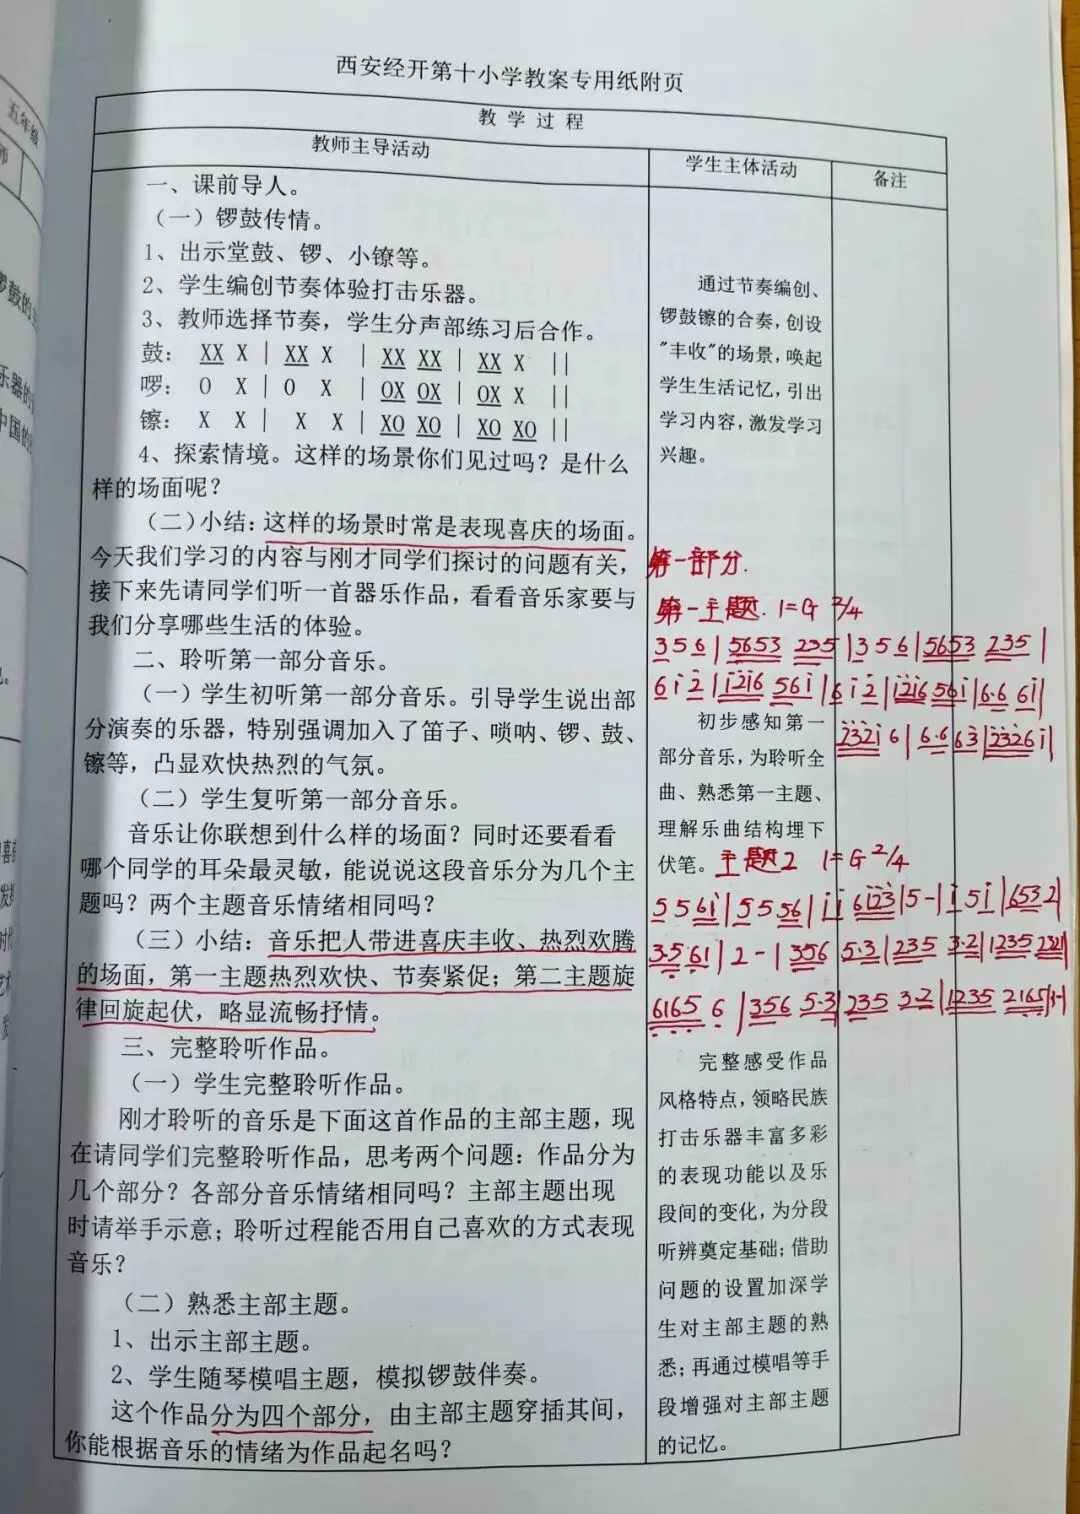 五年级
师
西安经开第十小学教案专用纸附页
教 学 过 程
教师主导活动
学生主体活动
备注
一、课前导人。
（一）锣鼓传情。
1、出示堂鼓、锣、小镲等。
2、学生编创节奏体验打击乐器。
3、教师选择节奏，学生分声部练习后合作。
鼓： XX X | XX X | XX XX | XX X ||
啰： O X | O X | OX OX | OX X ||
镲： X X | X X | XO XO | XO XO ||
4、探索情境。这样的场景你们见过吗？是什么
样的场面呢？
（二）小结：这样的场景时常是表现喜庆的场面。
今天我们学习的内容与刚才同学们探讨的问题有关，
接下来先请同学们听一首器乐作品，看看音乐家要与
我们分享哪些生活的体验。
二、聆听第一部分音乐。
（一）学生初听第一部分音乐。引导学生说出部
分演奏的乐器，特别强调加入了笛子、唢呐、锣、鼓、
镲等，凸显欢快热烈的气氛。
（二）学生复听第一部分音乐。
音乐让你联想到什么样的场面？同时还要看看
哪个同学的耳朵最灵敏，能说说这段音乐分为几个主
题吗？两个主题音乐情绪相同吗？
（三）小结：音乐把人带进喜庆丰收、热烈欢腾
的场面，第一主题热烈欢快、节奏紧促；第二主题旋
律回旋起伏，略显流畅抒情。
三、完整聆听作品。
（一）学生完整聆听作品。
刚才聆听的音乐是下面这首作品的主部主题，现
在请同学们完整聆听作品，思考两个问题：作品分为
几个部分？各部分音乐情绪相同吗？主部主题出现
时请举手示意；聆听过程能否用自己喜欢的方式表现
音乐？
（二）熟悉主部主题。
1、出示主部主题。
2、学生随琴模唱主题，模拟锣鼓伴奏。
这个作品分为四个部分，由主部主题穿插其间，
你能根据音乐的情绪为作品起名吗？
通过节奏编创、
锣鼓镲的合奏，创设
"丰收"的场景，唤起
学生生活记忆，引出
学习内容，激发学习
兴趣。
第一部分.
第一主题. 1=G 2/4
3 5 6 | 5653 235 | 3 5 6 | 5653 235 |
6 i 2 | i2i6 56i | 6 i 2 | i2i6 56i | 6·6 6i |
232i 6 | 6·6 63 | 2326 i |
初步感知第一
部分音乐，为聆听全
曲、熟悉第一主题、
理解乐曲结构埋下
伏笔。
主题2 1=G 2/4
5 5 6i | 5 5 56 | i i 6i23 | 5 - | i 5 i | 653 2 |
3·5 61 | 2 - | 356 5·3 | 235 3·2 | 1235 2321 |
6165 6 | 356 5·3 | 235 3·2 | 1235 2165 | 1 - |
完整感受作品
风格特点，领略民族
打击乐器丰富多彩
的表现功能以及乐
段间的变化，为分段
听辨奠定基础；借助
问题的设置加深学
生对主部主题的熟
悉；再通过模唱等手
段增强对主部主题
的记忆。